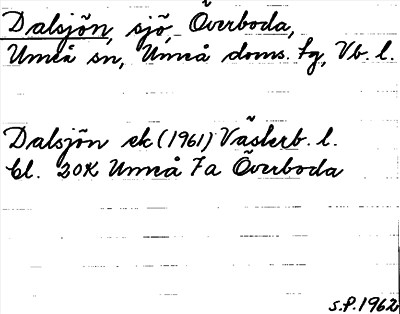 Dalsjön, sjö, Överboda,
Umeå sn, Umeå doms. tg, Vb. l.
Dalsjön ek (1961) Västerb. l.
bl. 20K Umeå 7a Överboda
S.P. 1962